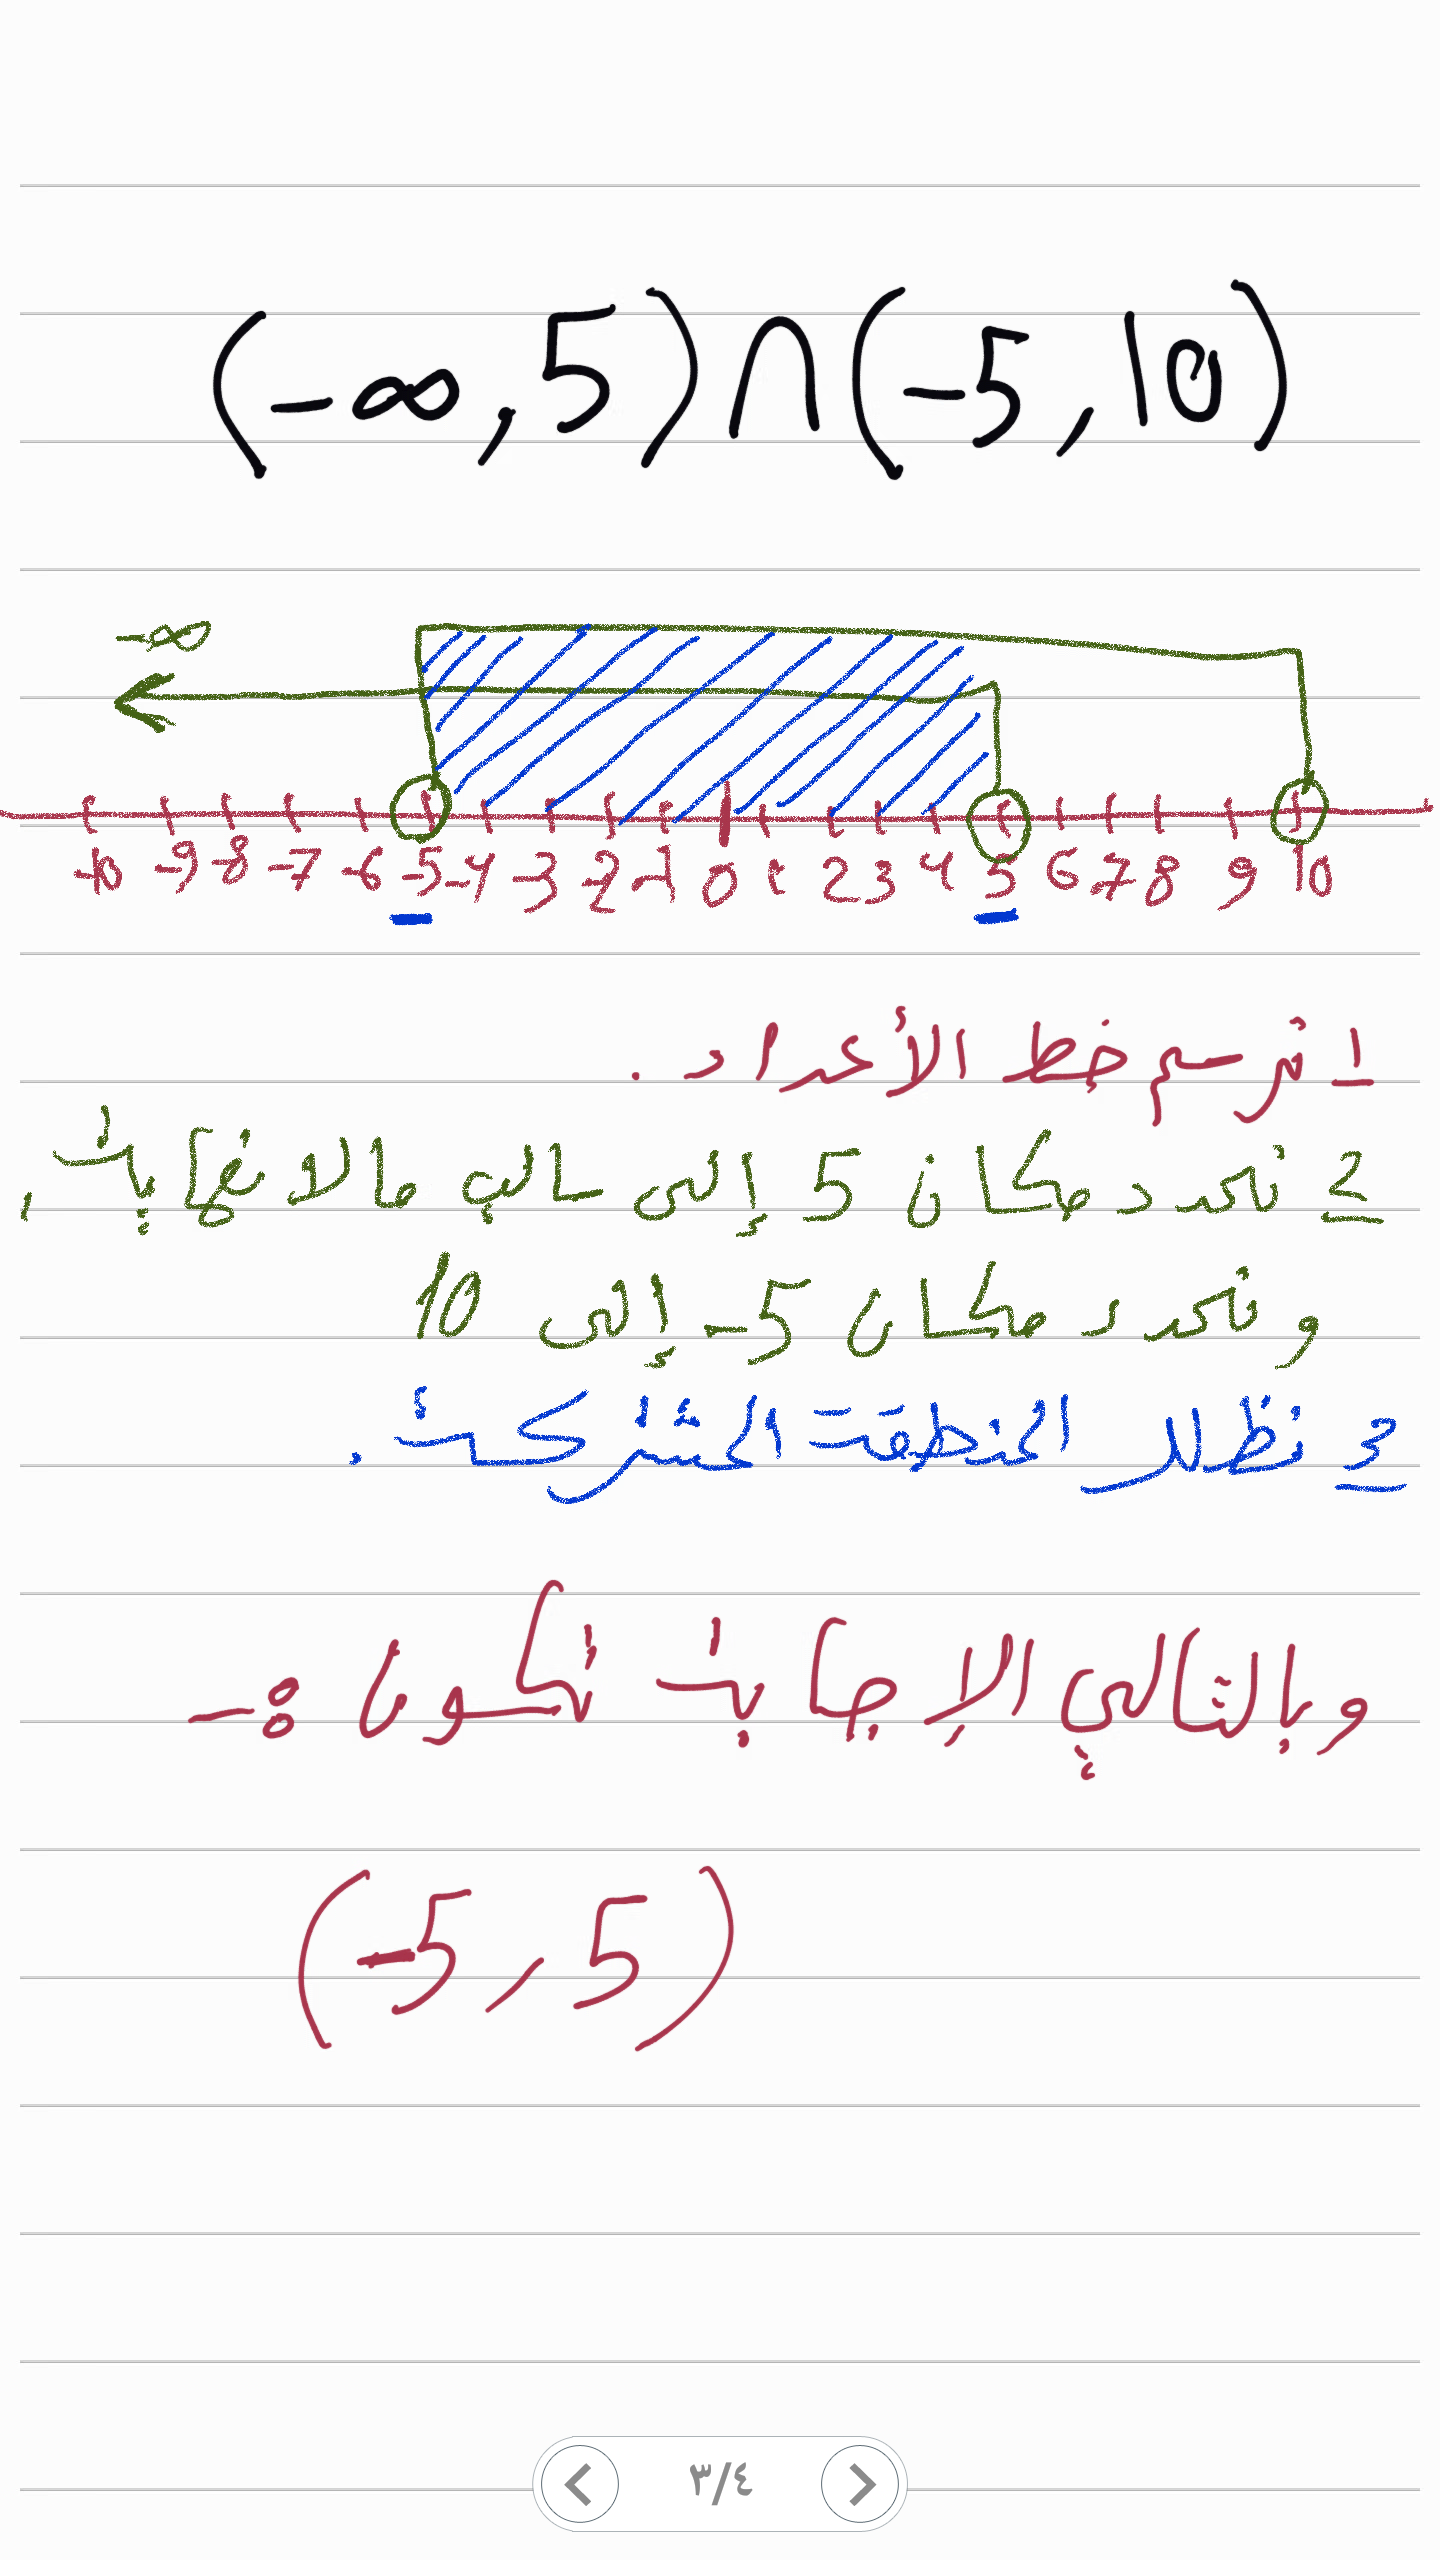 (-∞,5)∩(-5,10)
-∞
-10 -9 -8 -7 -6 -5 -4 -3 -2 -1 0 1 2 3 4 5 6 7 8 9 10
1 نرسم خط الأعداد .
2 نحدد مكان 5 إلى سالب مالانهاية ,
و نحدد مكان 5- إلى 10
3 نظلل المنطقة المشتركة .
وبالتالي الإجابة تكون :-
(-5,5)
٣/٤